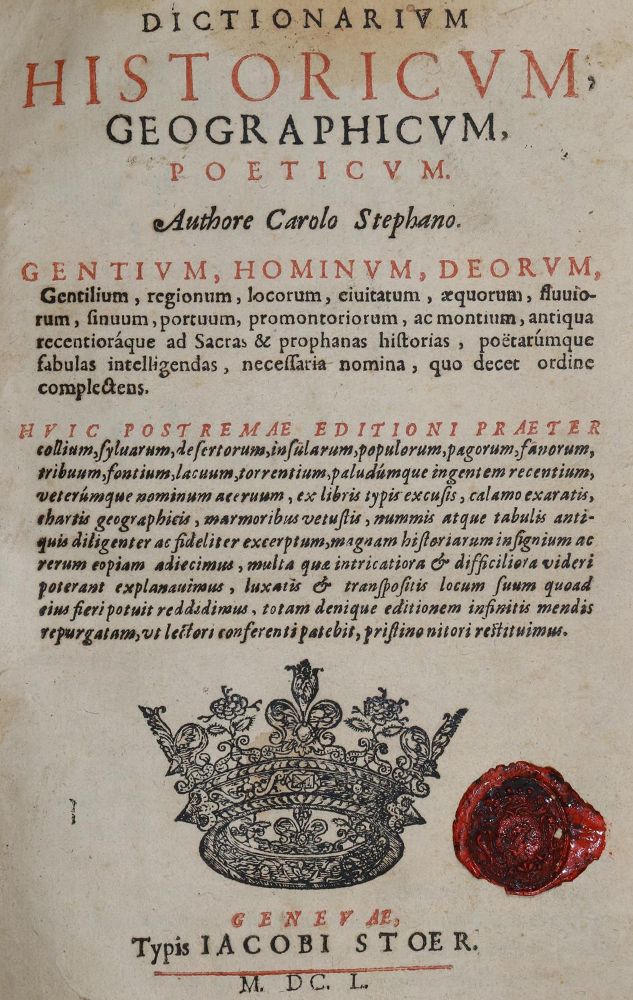 DICTIONARIVM
HISTORICVM,
GEOGRAPHICVM,
POETICVM.
Authore Carolo Stephano.
GENTIVM, HOMINVM, DEORVM,
Gentilium, regionum, locorum, ciuitatum, æquorum, fluuio-
rum, ſinuum, portuum, promontoriorum, ac montium, antiqua
recentioráque ad Sacras & prophanas hiſtorias, poëtarúmque
fabulas intelligendas, neceſſaria nomina, quo decet ordine
complectens.
HVIC POSTREMAE EDITIONI PRAETER
collium, ſyluarum, deſertorum, inſularum, populorum, pagorum, fanorum,
tribuum, fontium, lacuum, torrentium, paludúmque ingentem recentium,
veterúmque nominum aceruum, ex libris typis excuſis, calamo exaratis,
chartis geographicis, marmoribus vetuſtis, nummis atque tabulis anti-
quis diligenter ac fideliter excerptum, magnam hiſtoriarum inſignium ac
rerum copiam adiecimus, multa quæ intricatiora & difficiliora videri
poterant explanauimus, luxatis & tranſpoſitis locum ſuum quoad
eius fieri potuit reddidimus, totam denique editionem infinitis mendis
repurgatam, vt lectori conferenti patebit, priſtino nitori reſtituimus.
GENEVAE,
Typis IACOBI STOER.
M. DC. L.